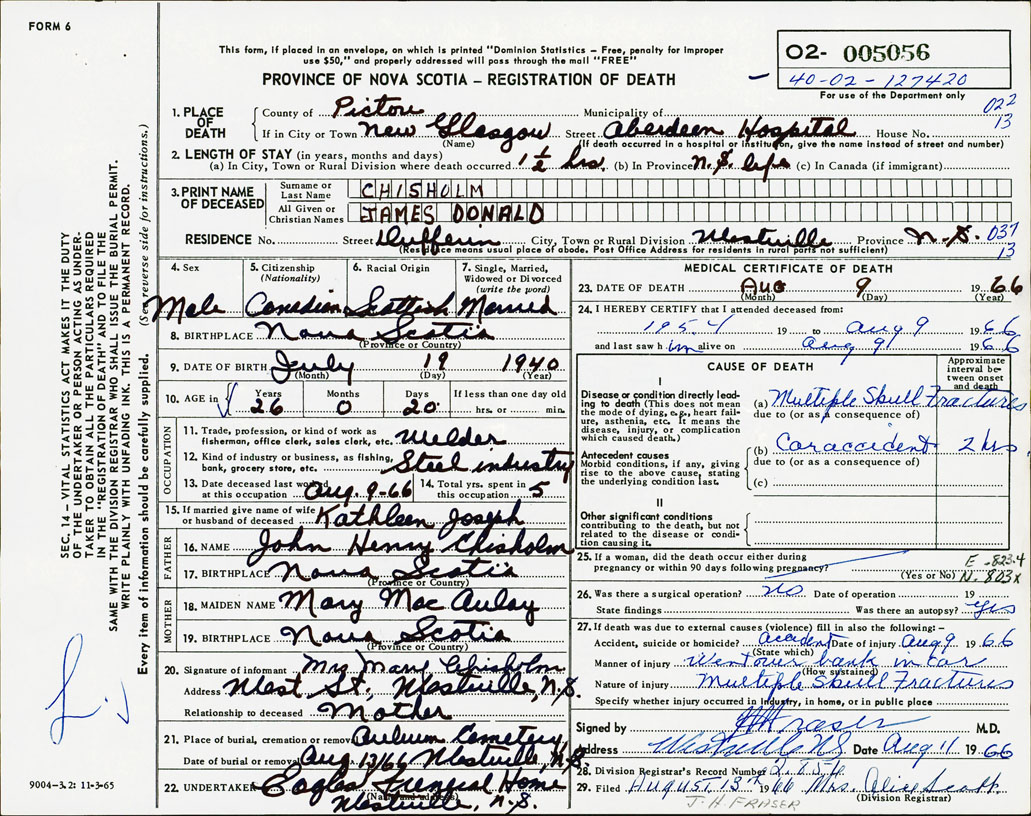 FORM 6
This form, if placed in an envelope, on which is printed "Dominion Statistics – Free, penalty for improper
use $50," and properly addressed will pass through the mail "FREE"
PROVINCE OF NOVA SCOTIA – REGISTRATION OF DEATH
02- 005056
40-02-127420
For use of the Department only
022
13
1. PLACE OF DEATH
County of Pictou Municipality of
If in City or Town New Glasgow Street Aberdeen Hospital House No.
(Name) (If death occurred in a hospital or institution, give the name instead of street and number)
2. LENGTH OF STAY (in years, months and days)
(a) In City, Town or Rural Division where death occurred 1½ hrs. (b) In Province N.S. life (c) In Canada (if immigrant)
3. PRINT NAME OF DECEASED
Surname or Last Name CHISHOLM
All Given or Christian Names JAMES DONALD
RESIDENCE No. Street Dufferin City, Town or Rural Division Westville Province N.S. 037
(Residence means usual place of abode. Post Office Address for residents in rural parts not sufficient) 13
4. Sex 5. Citizenship (Nationality) 6. Racial Origin 7. Single, Married, Widowed or Divorced (write the word)
Male Canadian Scottish Married
8. BIRTHPLACE Nova Scotia
(Province or Country)
9. DATE OF BIRTH July 19 1940
(Month) (Day) (Year)
10. AGE in Years Months Days If less than one day old
26 0 20 hrs. or min.
OCCUPATION
11. Trade, profession, or kind of work as
fisherman, office clerk, sales clerk, etc. Welder
12. Kind of industry or business, as fishing,
bank, grocery store, etc. Steel industry
13. Date deceased last worked at this occupation Aug. 9-66 14. Total yrs. spent in this occupation 5
15. If married give name of wife
or husband of deceased Kathleen Joseph
FATHER
16. NAME John Henry Chisholm
17. BIRTHPLACE Nova Scotia
(Province or Country)
MOTHER
18. MAIDEN NAME Mary MacAulay
19. BIRTHPLACE Nova Scotia
(Province or Country)
20. Signature of informant Mrs Mary Chisholm
Address West St., Westville, N.S.
Relationship to deceased Mother
21. Place of burial, cremation or removal Auburn Cemetery
Date of burial or removal Aug 13/66 Westville, N.S.
22. UNDERTAKER Eagles Funeral Home
(Name and address)
Westville, N.S.
MEDICAL CERTIFICATE OF DEATH
23. DATE OF DEATH Aug 9 1966
(Month) (Day) (Year)
24. I HEREBY CERTIFY that I attended deceased from:
1954 19 to Aug 9 1966
and last saw him alive on Aug 9 1966
CAUSE OF DEATH
Approximate interval between onset and death
I
Disease or condition directly leading to death (This does not mean
the mode of dying, e.g., heart failure, asthenia, etc. It means the
disease, injury, or complication
which caused death.)
(a) Multiple Skull Fractures
due to (or as a consequence of)
Antecedent causes
Morbid conditions, if any, giving
rise to the above cause, stating
the underlying condition last.
(b) Car accident 2 hrs
due to (or as a consequence of)
(c)
II
Other significant conditions
contributing to the death, but not
related to the disease or condition causing it.
25. If a woman, did the death occur either during
pregnancy or within 90 days following pregnancy?
(Yes or No)
E -823.4
N. 803x
26. Was there a surgical operation? no Date of operation 19
State findings Was there an autopsy? yes
27. If death was due to external causes (violence) fill in also the following:–
Accident, suicide or homicide? accident Date of injury Aug 9 1966
(State which)
Manner of injury Went over bank in car
(How sustained)
Nature of injury Multiple Skull Fractures
Specify whether injury occurred in industry, in home, or in public place
Signed by JH Fraser M.D.
Address Westville NS Date Aug 11 1966
28. Division Registrar's Record Number
29. Filed August 13th 1966 Mrs. Alice Scott
(Division Registrar)
J.H. FRASER
SEC. 14 – VITAL STATISTICS ACT MAKES IT THE DUTY
OF THE UNDERTAKER OR PERSON ACTING AS UNDER-
TAKER TO OBTAIN ALL THE PARTICULARS REQUIRED
IN THE "REGISTRATION OF DEATH" AND TO FILE THE
SAME WITH THE DIVISION REGISTRAR WHO SHALL ISSUE THE BURIAL PERMIT.
WRITE PLAINLY WITH UNFADING INK. THIS IS A PERMANENT RECORD.
Every item of information should be carefully supplied. (See reverse side for instructions.)
9004-3.2: 11-3-65